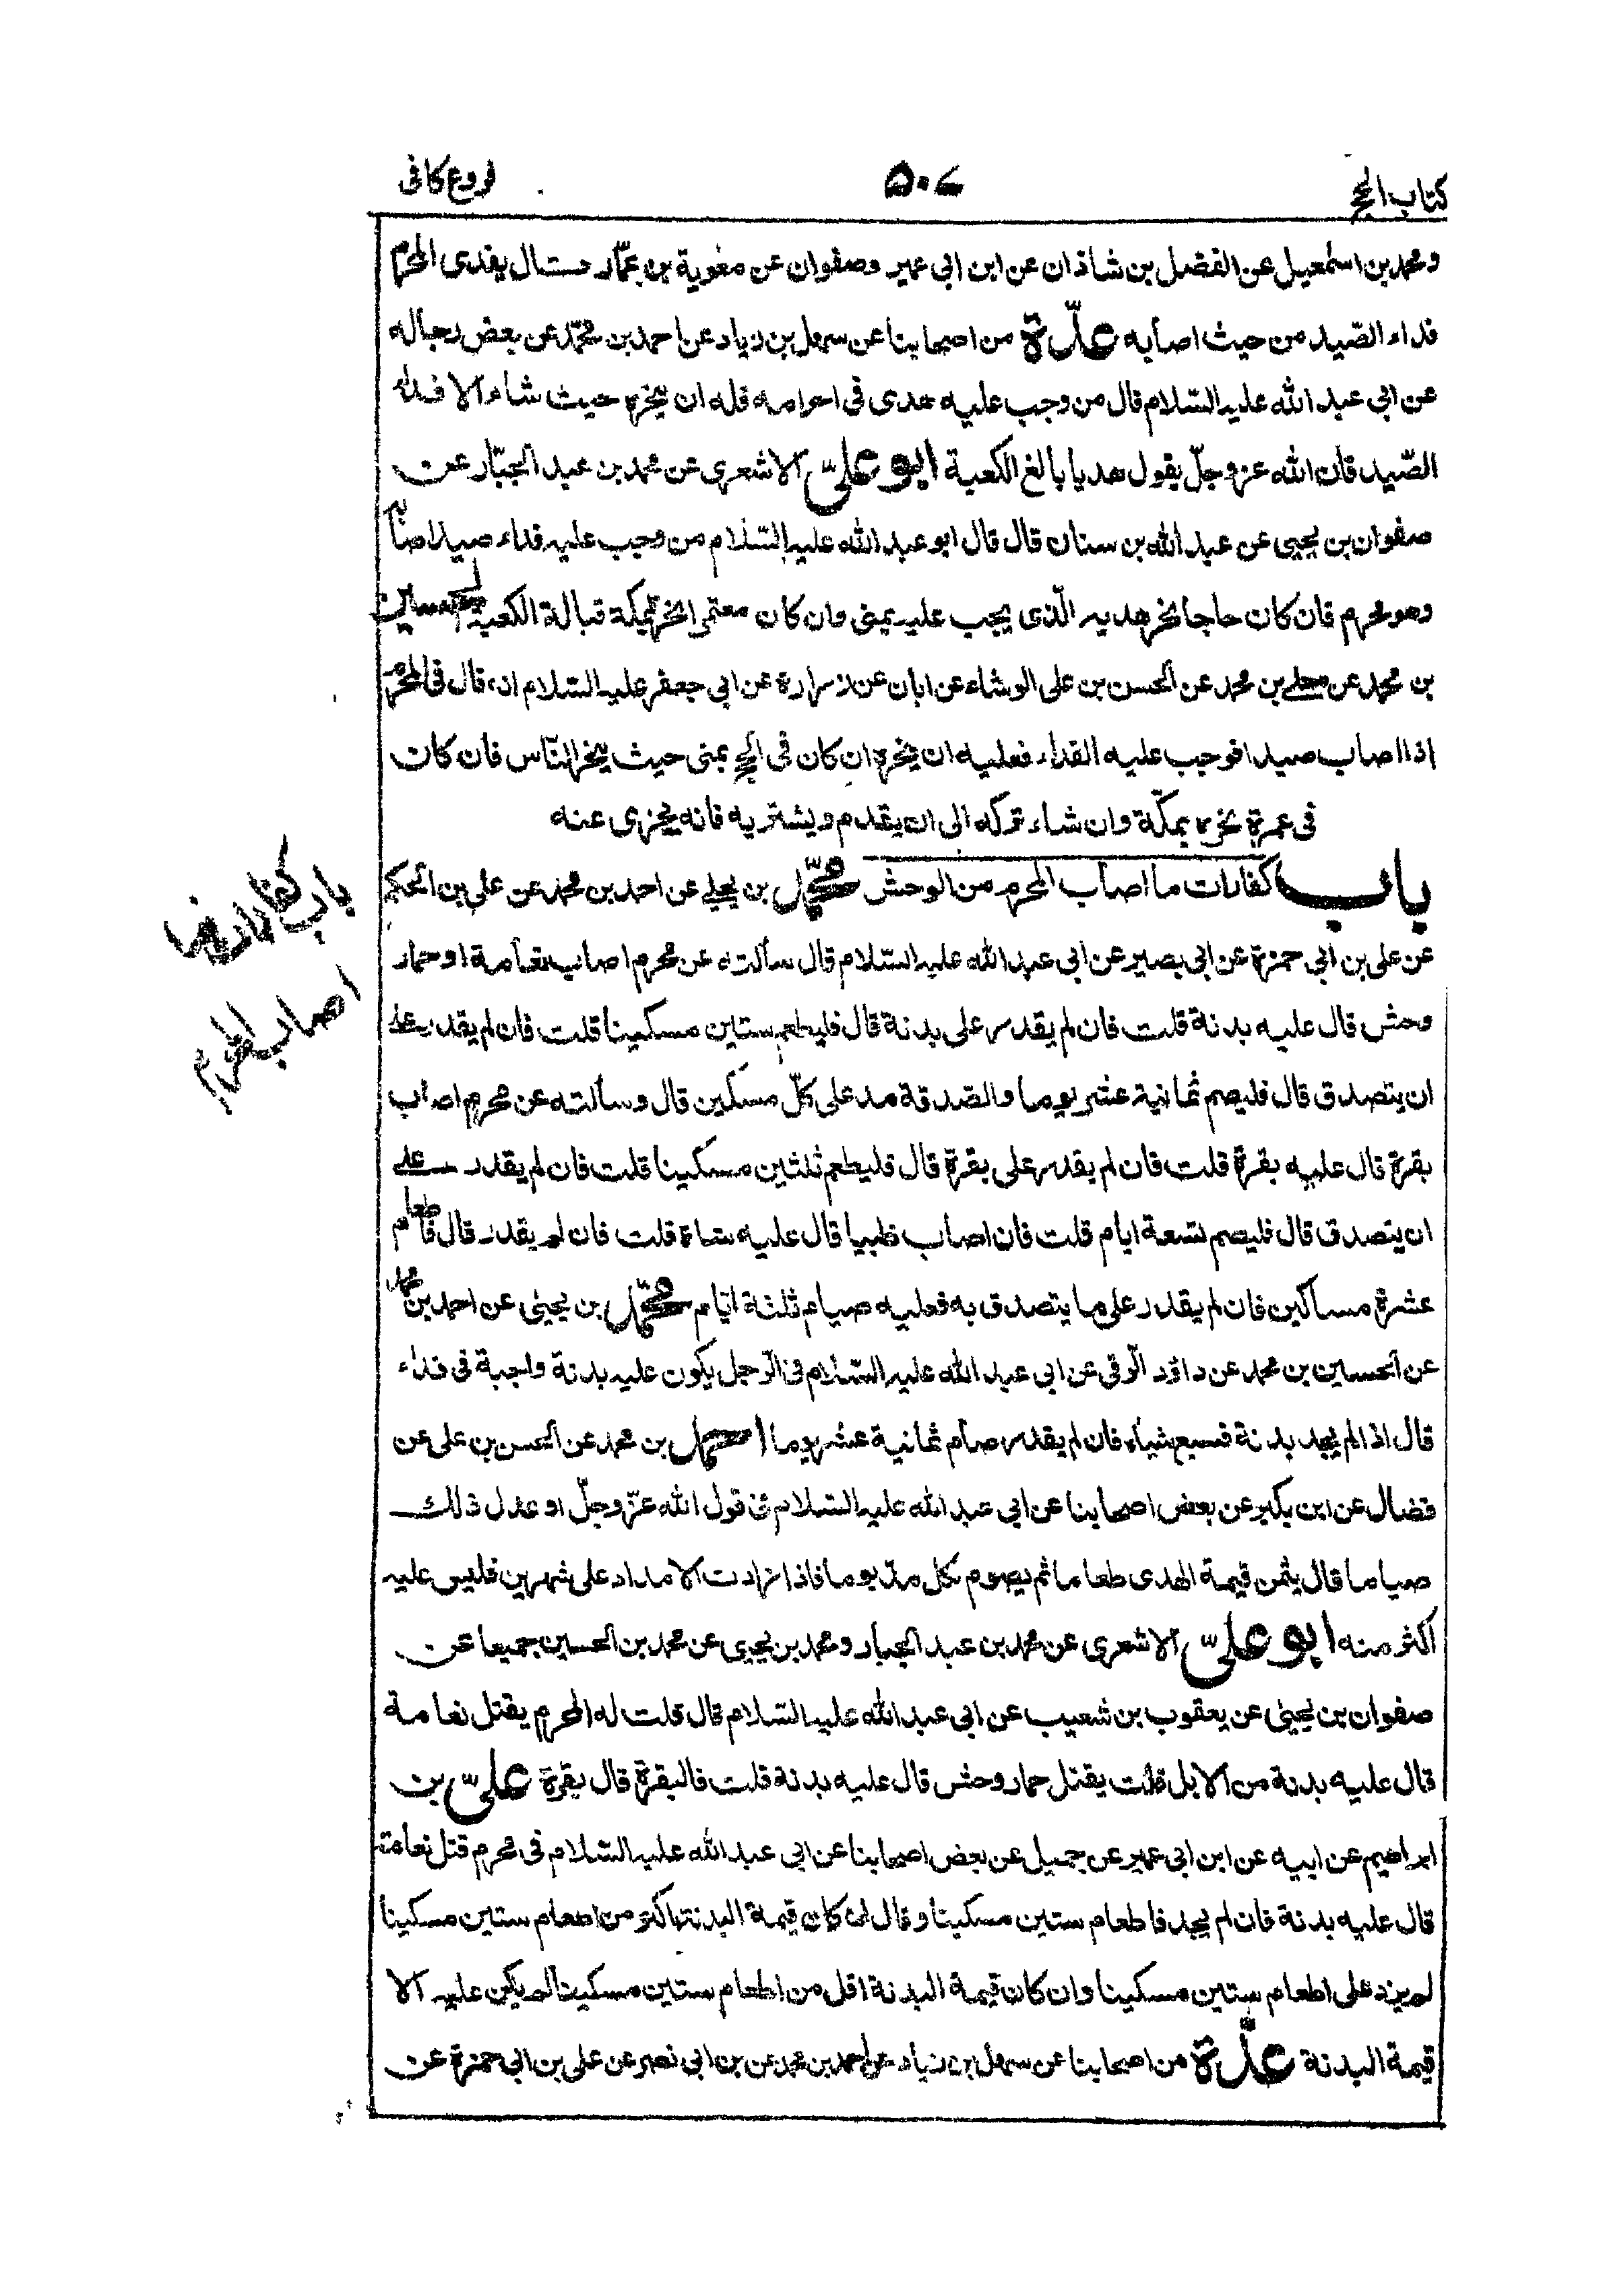 كتاب الحج
فروع كافى
ومحمد بن اسمعيل عن الفضل بن شاذان عن ابن ابى عمير وصفوان عن معوية بن عمّار قال يفدى المحرم
فداء الصّيد من حيث اصابه عدّة من اصحابنا عن سهل بن زياد عن احمد بن محمّد عن بعض رجاله
عن ابى عبد الله عليه السّلام قال من وجب عليه هدى فى احرامه فله ان ينحره حيث شاء الا فداء
الصّيد فان الله عز وجلّ يقول هديا بالغ الكعبة ابو علىّ الاشعرى عن محمد بن عبد الجبّار عن
صفوان بن يحيى عن عبد الله بن سنان قال قال ابو عبد الله عليه السّلام من وجب عليه فداء صيد اصابه
وهو محرم فان كان حاجا نحر هديه الّذى يجب عليه بمنى وان كان معتمرا نحر بمكة قبالة الكعبة الحسين
بن محمد عن معلى بن محمد عن الحسن بن على الوشاء عن ابان عن زرارة عن ابى جعفر عليه السّلام انه قال فى المحرم
اذا اصاب صيدا فوجب عليه الفداء فعليه ان ينحره ان كان فى الحج بمنى حيث ينحر النّاس فان كان
فى عمرة نحره بمكّة وان شاء تركه الى ان يقدم ويشتريه فانه يجزى عنه
باب كفارات ما اصاب المحرم من الوحش محمّد بن يحيى عن احمد بن محمد عن على بن الحكم
عن على بن ابى حمزة عن ابى بصير عن ابى عبد الله عليه السّلام قال سألته عن محرم اصاب نعامة او حمار
وحش قال عليه بدنة قلت فان لم يقدر على بدنة قال فليطعم ستين مسكينا قلت فان لم يقدر على
ان يتصدق قال فليصم ثمانية عشر يوما والصّدقة مد على كلّ مسكين قال وسألته عن محرم اصاب
بقرة قال عليه بقرة قلت فان لم يقدر على بقرة قال فليطعم ثلثين مسكينا قلت فان لم يقدر على
ان يتصدق قال فليصم تسعة ايام قلت فان اصاب ظبيا قال عليه شاة قلت فان لم يقدر قال فاطعام
عشرة مساكين فان لم يقدر على ما يتصدق به فعليه صيام ثلثة ايّام محمّد بن يحيى عن احمد بن محمد
عن الحسين بن محمد عن داؤد الرّقى عن ابى عبد الله عليه السّلام فى الرّجل يكون عليه بدنة واجبة فى فداء
قال اذا لم يجد بدنة فسبع شياه فان لم يقدر صام ثمانية عشر يوما احمد بن محمد عن الحسن بن على عن
فضال عن ابن بكير عن بعض اصحابنا عن ابى عبد الله عليه السّلام فى قول الله عزّ وجلّ او عدل ذلك
صياما قال يثمن قيمة الهدى طعاما ثم يصوم لكل مدّ يوما فاذا زادت الامداد على شهرين فليس عليه
اكثر منه ابو علىّ الاشعرى عن محمد بن عبد الجبار ومحمد بن يحيى عن محمد بن الحسين جميعا عن
صفوان بن يحيى عن يعقوب بن شعيب عن ابى عبد الله عليه السّلام قال قلت له المحرم يقتل نعامة
قال عليه بدنة من الابل قلت يقتل حمار وحش قال عليه بدنة قلت فالبقرة قال بقرة علىّ بن
ابراهيم عن ابيه عن ابن ابى عمير عن جميل عن بعض اصحابنا عن ابى عبد الله عليه السّلام فى محرم قتل نعامة
قال عليه بدنة فان لم يجد فاطعام ستين مسكينا وقال ان كان قيمة البدنة اكثر من اطعام ستين مسكينا
لم يزد على اطعام ستين مسكينا وان كان قيمة البدنة اقل من اطعام ستين مسكينا لم يكن عليه الا
قيمة البدنة عدّة من اصحابنا عن سهل بن زياد عن احمد بن محمد عن بن ابى نصر عن على بن ابى حمزة عن
باب كفارات ما
اصاب المحرم